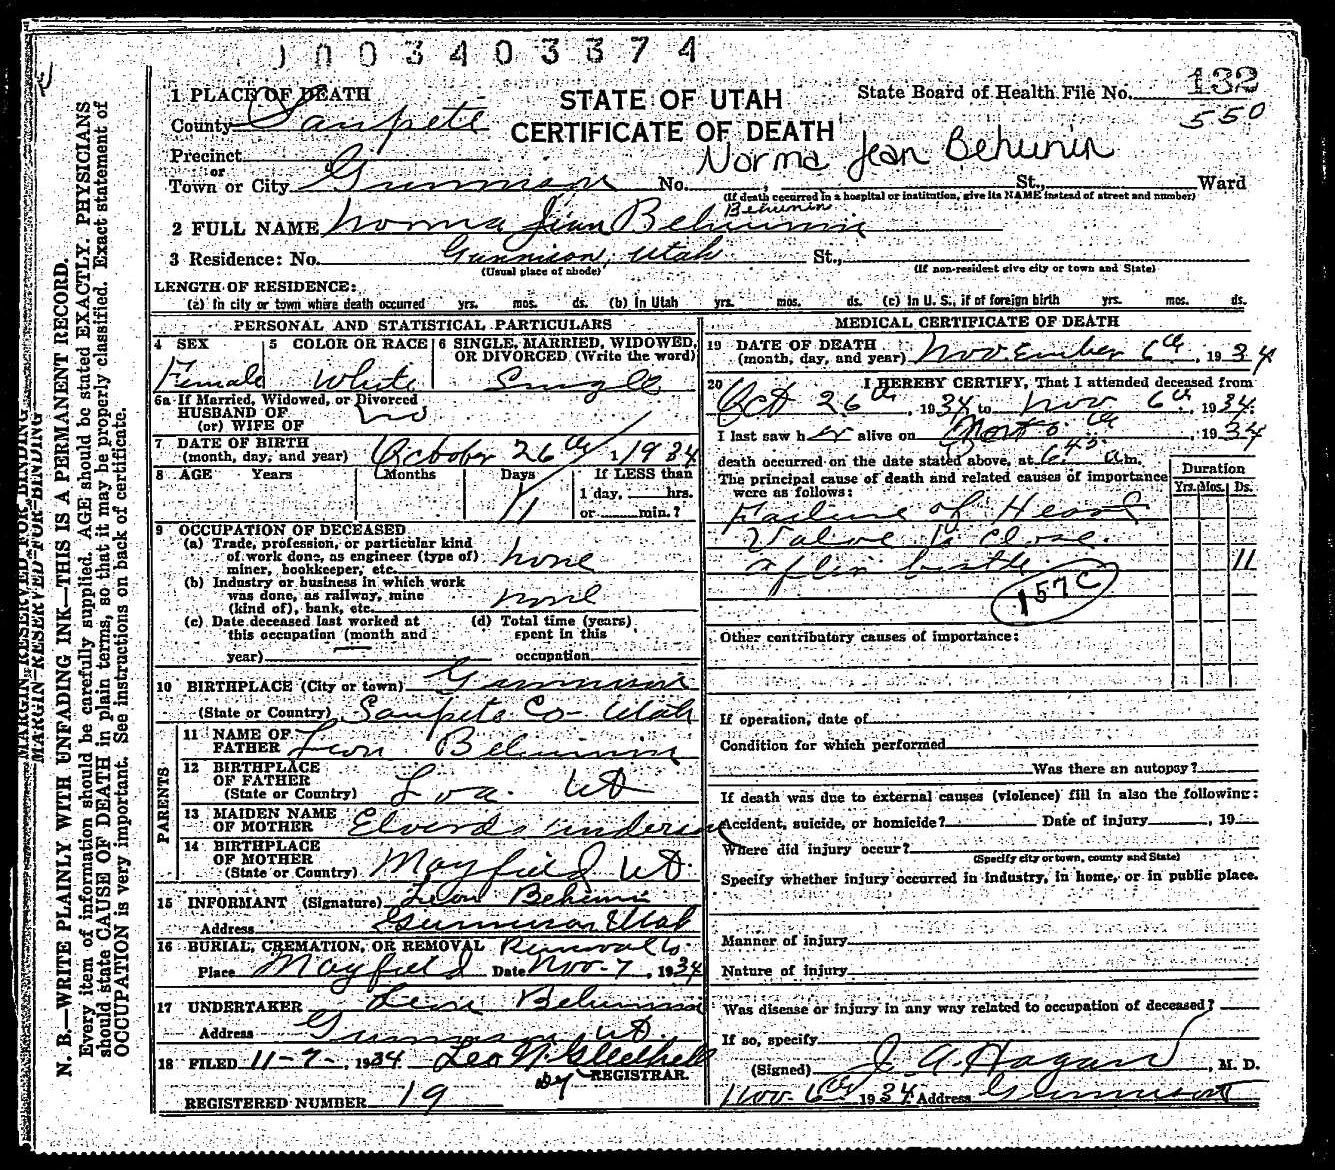 1003403374
1 PLACE OF DEATH
STATE OF UTAH
CERTIFICATE OF DEATH
State Board of Health File No. 132
550
County Sanpete
Precinct
or
Town or City Gunnison No. , St., Ward
Norma Jean Behunin
(If death occurred in a hospital or institution, give its NAME instead of street and number)
Behunin
2 FULL NAME Norma Jean Behunin
3 Residence: No. Gunnison, Utah St.,
(Usual place of abode) (If non-resident give city or town and State)
LENGTH OF RESIDENCE:
(a) In city or town where death occurred yrs. mos. ds. (b) In Utah yrs. mos. ds. (c) In U. S., if of foreign birth yrs. mos. ds.
PERSONAL AND STATISTICAL PARTICULARS
4 SEX 5 COLOR OR RACE 6 SINGLE, MARRIED, WIDOWED, OR DIVORCED (Write the word)
Female White Single
6a If Married, Widowed, or Divorced
HUSBAND OF
(or) WIFE OF no
7 DATE OF BIRTH
(month, day, and year) October 26th, 1934
8 AGE Years Months Days If LESS than
1 day, hrs.
or min.?
11
9 OCCUPATION OF DECEASED
(a) Trade, profession, or particular kind
of work done, as engineer (type of)
miner, bookkeeper, etc. none
(b) Industry or business in which work
was done, as railway, mine
(kind of), bank, etc. none
(c) Date deceased last worked at (d) Total time (years)
this occupation (month and spent in this
year) occupation
10 BIRTHPLACE (City or town) Gunnison
(State or Country) Sanpete Co- Utah
PARENTS
11 NAME OF
FATHER Leon Behunin
12 BIRTHPLACE
OF FATHER
(State or Country) Loa. Ut
13 MAIDEN NAME
OF MOTHER Anderson
14 BIRTHPLACE
OF MOTHER
(State or Country) Mayfield Ut.
15 INFORMANT (Signature) Leon Behunin
Address Gunnison Utah
16 BURIAL, CREMATION, OR REMOVAL Removal to
Place Mayfield Date Nov-7, 1934
17 UNDERTAKER Leon Behunin
Address Gunnison Ut.
18 FILED 11-7-, 1934 Leo N. Gledhill
By REGISTRAR
REGISTERED NUMBER 19
MEDICAL CERTIFICATE OF DEATH
19 DATE OF DEATH
(month, day, and year) November 6th, 1934
20 I HEREBY CERTIFY, That I attended deceased from
Oct 26th, 1934 to Nov 6th, 1934.
I last saw her alive on th, 1934
death occurred on the date stated above, at 645 a.m.
The principal cause of death and related causes of importance
were as follows:
Duration
Yrs. Mos. Ds.
Failure of Heart
Valve to close.
after birth. 11
157C
Other contributory causes of importance:
If operation, date of
Condition for which performed
Was there an autopsy?
If death was due to external causes (violence) fill in also the following:
Accident, suicide, or homicide? Date of injury , 19
Where did injury occur?
(Specify city or town, county and State)
Specify whether injury occurred in industry, in home, or in public place.
Manner of injury
Nature of injury
Was disease or injury in any way related to occupation of deceased?
If so, specify
(Signed) J. A. Hagan, M. D.
Nov. 6th 1934 Address Gunnison
MARGIN RESERVED FOR BINDING
MARGIN RESERVED FOR BINDING
N. B.—WRITE PLAINLY WITH UNFADING INK—THIS IS A PERMANENT RECORD.
Every item of information should be carefully supplied. AGE should be stated EXACTLY. PHYSICIANS
should state CAUSE OF DEATH in plain terms, so that it may be properly classified. Exact statement of
OCCUPATION is very important. See instructions on back of certificate.